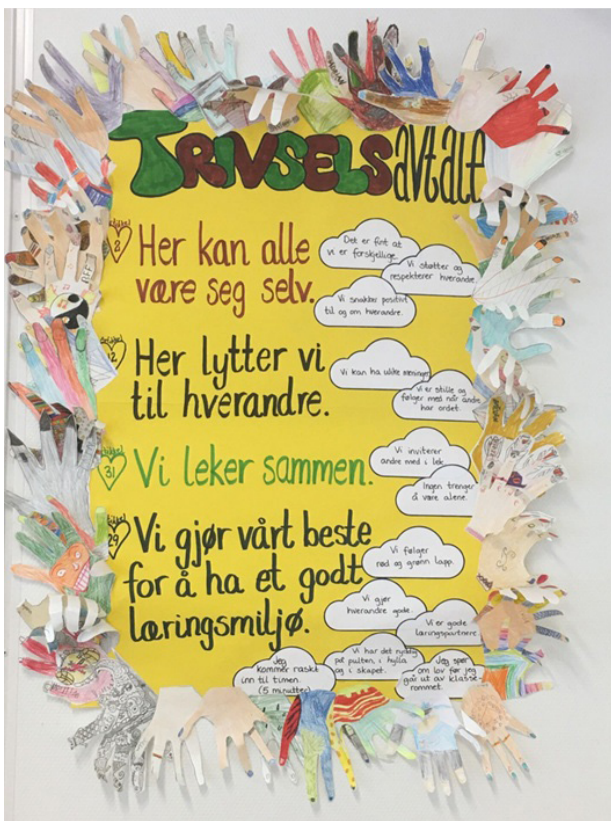 TRIVSELSavtale
artikkel
2
Her kan alle
være seg selv.
Det er fint at
vi er forskjellige.
Vi støtter og
respekterer hverandre.
Vi snakker positivt
til og om hverandre.
12
Her lytter vi
til hverandre.
Vi kan ha ulike meninger
Vi er stille og
følger med når andre
har ordet.
artikkel
31
Vi leker sammen.
Vi inviterer
andre med i lek.
Ingen trenger
å være alene.
29
Vi gjør vårt beste
for å ha et godt
læringsmiljø.
Vi følger
rød og grønn lapp.
Vi gjør
hverandre gode.
Vi er gode
læringspartnere.
Vi har det ryddig
på pulten, i hylla
og i skapet.
Jeg
kommer raskt
inn til timen.
(5 minutter)
Jeg spør
om lov før jeg
går ut av klasse-
rommet.